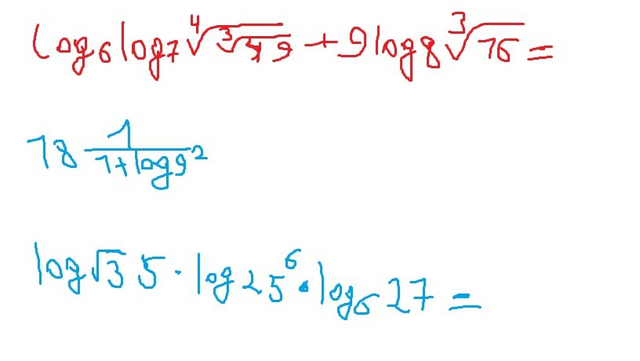 log₆ log₇ ⁴√(³√49) + 9 log₈ ³√16 =
18^(1/(1+log₉2))
log_√3 5 · log₂₅ 6 · log₆ 27 =